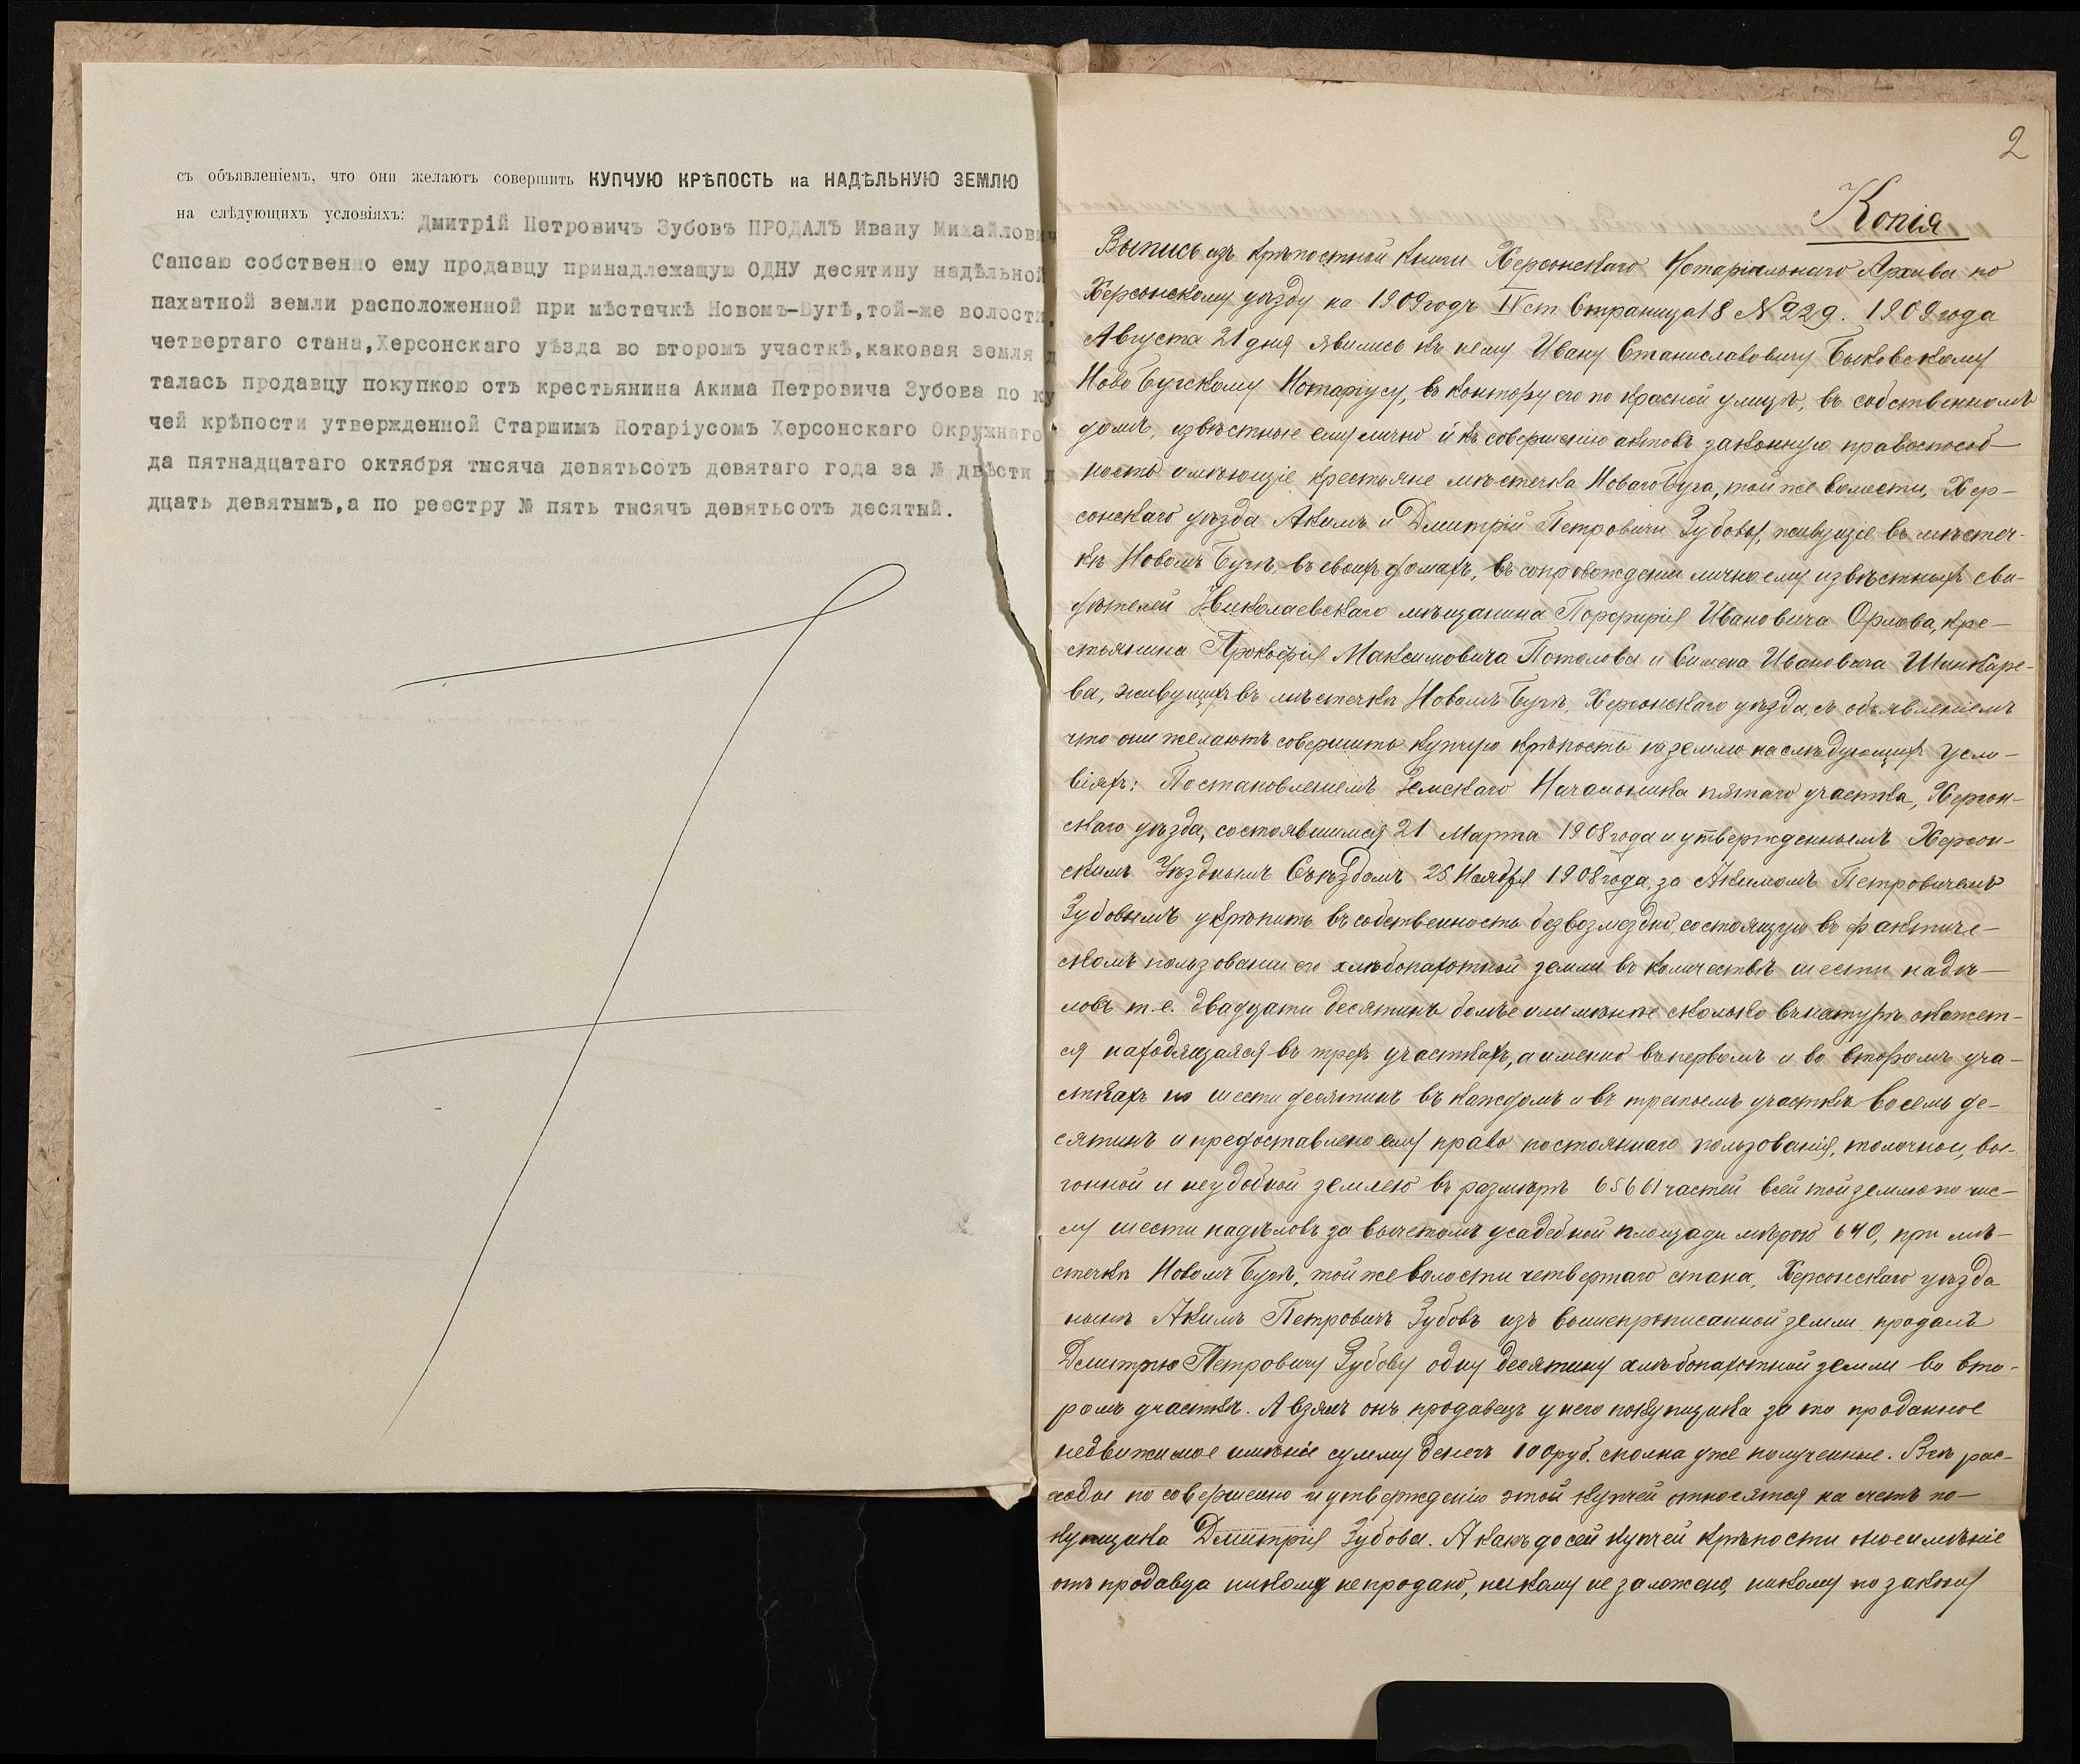 съ объявленіемъ, что они желаютъ совершить КУПЧУЮ КРѢПОСТЬ на НАДѢЛЬНУЮ ЗЕМЛЮ
на слѣдующихъ условіяхъ: Дмитрій Петровичъ Зубовъ ПРОДАЛЪ Ивану Михайлович
Сапсаю собственно ему продавцу принадлежащую ОДНУ десятину надѣльной
пахатной земли расположенной при мѣстечкѣ Новомъ-Бугѣ,той-же волости,
четвертаго стана,Херсонскаго уѣзда во второмъ участкѣ,каковая земля д
талась продавцу покупкою отъ крестьянина Акима Петровича Зубова по ку
чей крѣпости утвержденной Старшимъ Нотаріусомъ Херсонскаго Окружнаго
да пятнадцатаго октября тысяча девятьсотъ девятаго года за № двѣсти д
дцать девятымъ,а по реестру № пять тысячъ девятьсотъ десятый.
2
Копія
Выпись изъ крѣпостной книги Херсонскаго Нотаріальнаго Архива по
Херсонскому уѣзду на 1909 годъ IV ст Страница 18 № 229. 1909 года
Августа 21 дня явились къ нему Ивану Станиславовичу Быковскому
Ново Бугскому Нотаріусу, въ контору его по Красной улицѣ, въ собственномъ
домѣ, извѣстные ему лично и къ совершенію актовъ законную правоспособ-
ность имѣющіе крестьяне мѣстечка Новаго Буга, той же волости, Хер-
сонскаго уѣзда Акимъ и Дмитрій Петровичи Зубовы, живущіе въ мѣстеч-
кѣ Новомъ Бугѣ, въ своихъ домахъ, въ сопровожденіи лично ему извѣстныхъ сви-
дѣтелей Николаевскаго мѣщанина Порфирія Ивановича Орлова, кре-
стьянина Прокофія Максимовича Потолова и Симена Ивановича Шинкаре-
ва, живущихъ въ мѣстечкѣ Новомъ Бугѣ, Херсонскаго уѣзда, съ объявленіемъ
что они желаютъ совершить купчую крѣпость на землю на слѣдующихъ усло-
віяхъ: Постановленіемъ Земскаго Начальника пятаго участка, Херсон-
скаго уѣзда, состоявшимся 21 Марта 1908 года и утвержденнымъ Херсон-
скимъ Уѣзднымъ Съѣздомъ 25 Ноября 1908 года, за Акимомъ Петровичемъ
Зубовымъ укрѣпить въ собственность безвозмездно, состоящую въ фактиче-
скомъ пользованіи его хлѣбопахотной земли въ количествѣ шести надѣ-
ловъ т.е. двадцати десятинъ болѣе или менѣе сколько въ натурѣ окажет-
ся находящаяся въ трехъ участкахъ, а именно въ первомъ и во второмъ уча-
сткахъ по шести десятинъ въ каждомъ и въ третьемъ участкѣ восемь де-
сятинъ и предоставлено ему право постояннаго пользованія, толочной, вы-
гонной и неудобной землею въ размѣрѣ 65661 частей всей той землю по чис-
лу шести надѣловъ за вычетомъ усадебной площади мѣрою 640, при мѣ-
стечкѣ Новомъ Бугѣ, той же волости четвертаго стана, Херсонскаго уѣзда
нынѣ Акимъ Петровичъ Зубовъ изъ вышепрописанной земли продалъ
Дмитрію Петровичу Зубову одну десятину хлѣбопахотной земли во вто-
ромъ участкѣ. А взялъ онъ продавецъ у него покупщика за то проданное
недвижимое имѣніе сумму денегъ 100 руб. сполна уже полученные. Всѣ рас-
ходы по совершенію и утвержденію этой купчей относятся на счетъ по-
купщика Дмитрія Зубова. А какъ до сей купчей крѣпости оное имѣніе
отъ продавца никому не продано, никому не заложено, никому по закону